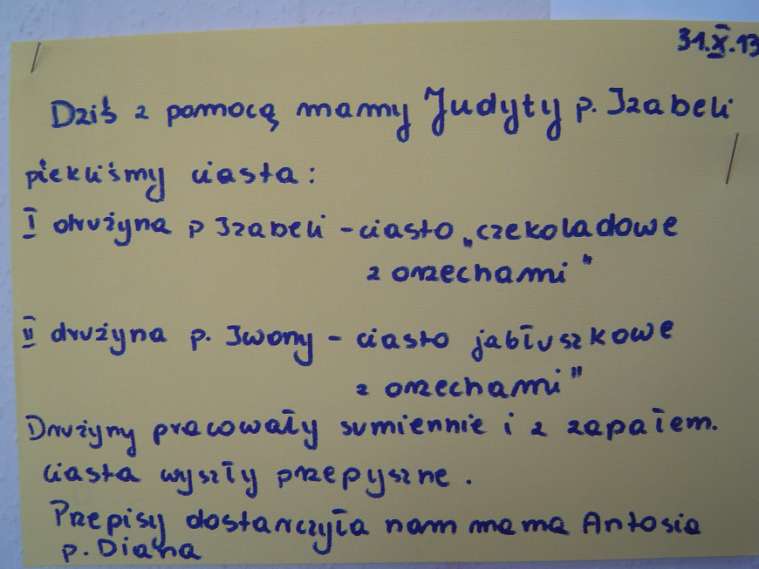 31.X.13
Dziś z pomocą mamy Judyty p. Izabeli
piekliśmy ciasta:
I drużyna p Izabeli - ciasto „czekoladowe
z orzechami"
II drużyna p. Iwony - ciasto jabłuszkowe
z orzechami"
Drużyny pracowały sumiennie i z zapałem.
Ciasta wyszły przepyszne.
Przepisy dostarczyła nam mama Antosia
p. Diana